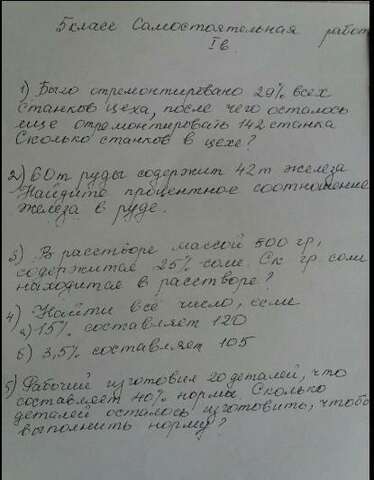 5 класс Самостоятельная работ
I в.
1) Было отремонтировано 29% всех
станков цеха, после чего осталось
ище отремонтировать 142 станка
Сколько станков в цехе?
2) 60т руды содержит 42т железа
Найдите процентное соотношение
железа в руде.
3) В расстворе массой 500 гр,
содержится 25% соли. Ск гр соли
находится в расстворе?
4) Найти всё число, если
а) 15% составляет 120
б) 3,5% составляет 105
5) Рабочий изготовил 20 деталей, что
составляет 40% нормы. Сколько
деталей осталось изготовить, чтобы
выполнить норму?